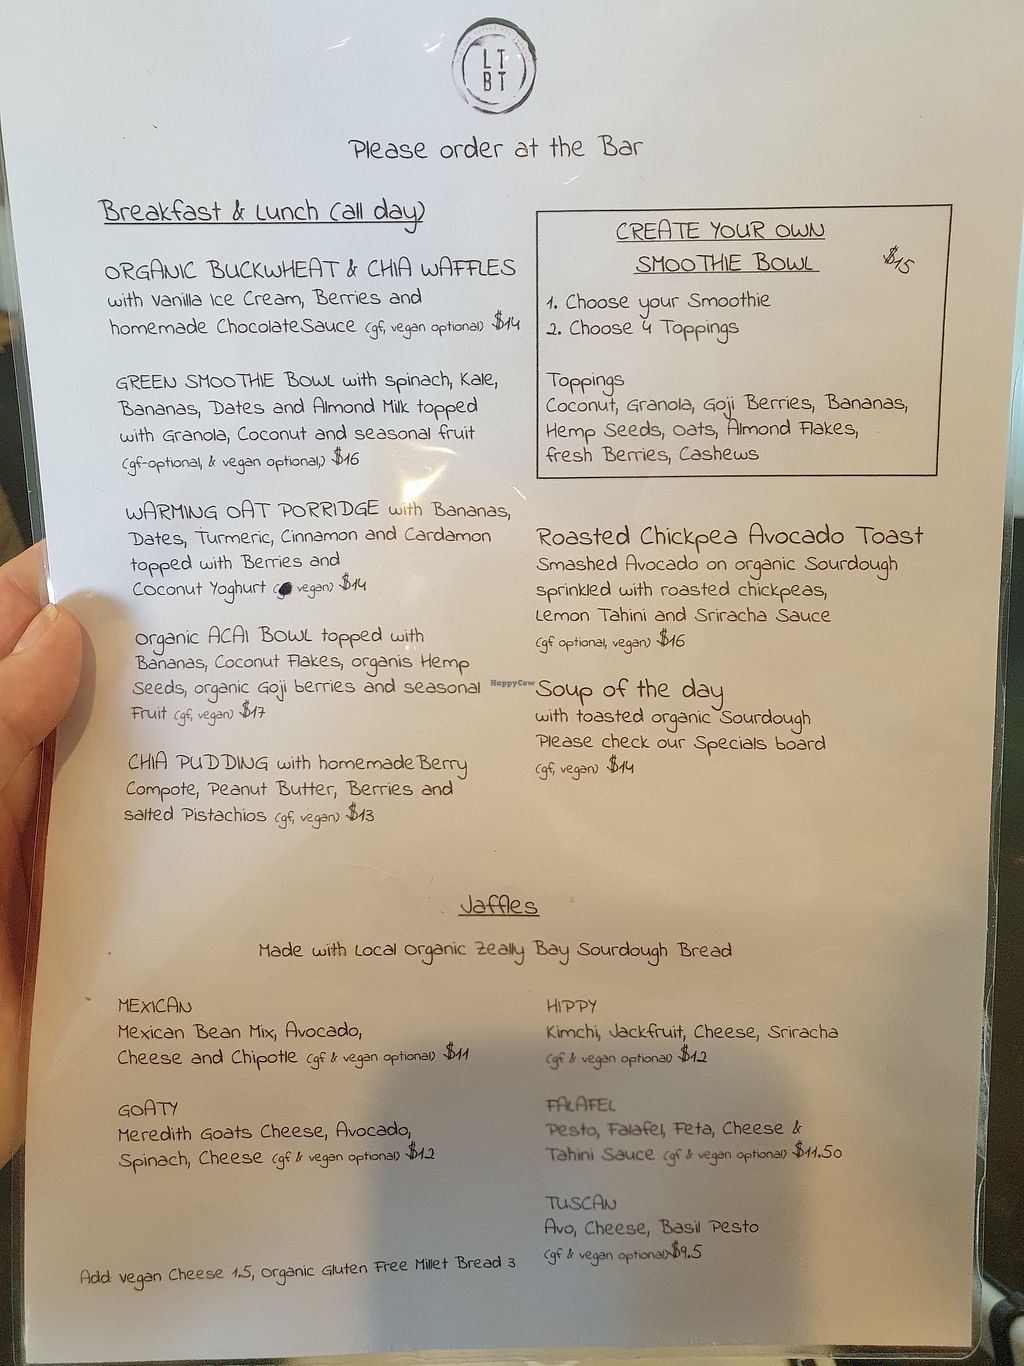 LT
BT
Please order at the Bar
Breakfast & Lunch (all day)
ORGANIC BUCKWHEAT & CHIA WAFFLES
with Vanilla Ice Cream, Berries and
homemade Chocolate Sauce (gf, vegan optional) $14
GREEN SMOOTHIE BOWL with spinach, Kale,
Bananas, Dates and Almond Milk topped
with Granola, Coconut and seasonal fruit
(gf-optional, & vegan optional,) $16
WARMING OAT PORRIDGE with Bananas,
Dates, Turmeric, Cinnamon and Cardamon
topped with Berries and
Coconut Yoghurt ( vegan) $14
organic ACAI BOWL topped with
Bananas, Coconut Flakes, organis Hemp
Seeds, organic Goji berries and seasonal
Fruit (gf, vegan) $17
CHIA PUDDING with homemade Berry
Compote, Peanut Butter, Berries and
salted Pistachios (gf, vegan) $13
CREATE YOUR OWN
SMOOTHIE BOWL
$15
1. Choose your Smoothie
2. Choose 4 Toppings
Toppings
Coconut, Granola, Goji Berries, Bananas,
Hemp Seeds, Oats, Almond Flakes,
fresh Berries, Cashews
Roasted Chickpea Avocado Toast
Smashed Avocado on organic Sourdough
sprinkled with roasted chickpeas,
Lemon Tahini and Sriracha Sauce
(gf optional, vegan) $16
HappyCow
Soup of the day
with toasted organic Sourdough
Please check our Specials board
(gf, vegan) $14
Jaffles
Made with Local Organic Zeally Bay Sourdough Bread
MEXICAN
Mexican Bean Mix, Avocado,
Cheese and Chipotle (gf & vegan optional) $11
GOATY
Meredith Goats Cheese, Avocado,
Spinach, Cheese (gf & vegan optional) $12
HIPPY
Kimchi, Jackfruit, Cheese, Sriracha
(gf & vegan optional) $12
FALAFEL
Pesto, Falafel, Feta, Cheese &
Tahini Sauce (gf & vegan optional) $11.50
TUSCAN
Avo, Cheese, Basil Pesto
(gf & vegan optional) $9.5
Add vegan Cheese 1.5, Organic Gluten Free Millet Bread 3